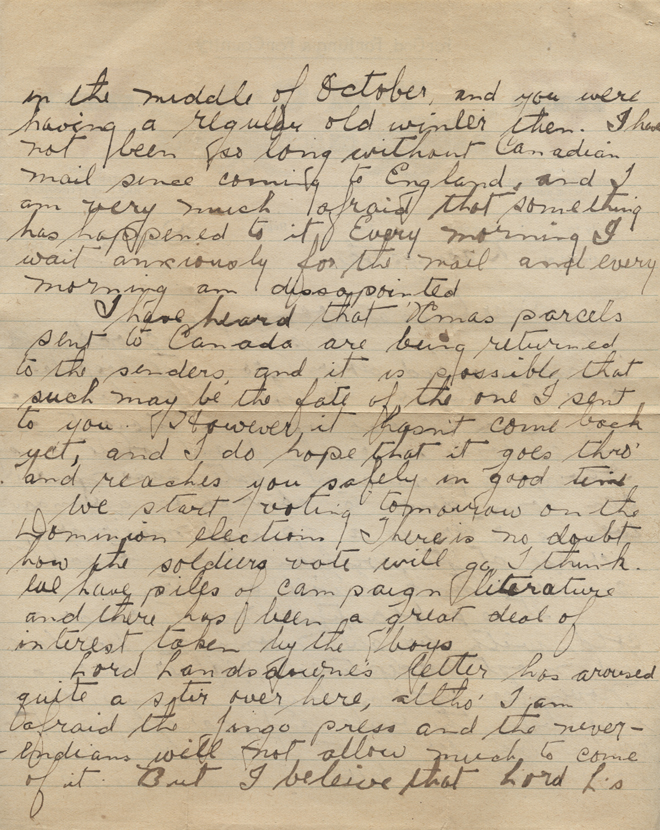 in the middle of October, and you were
having a regular old winter then. I have
not been so long without Canadian
mail since coming to England, and I
am very much afraid that something
has happened to it. Every morning I
wait anxiously for the mail and every
morning am dissapointed
I have heard that Xmas parcels
sent to Canada are being returned
to the senders, and it is possible that
such may be the fate of the one I sent
to you. However, it hasn't come back
yet, and I do hope that it goes thro'
and reaches you safely in good time
We start voting tomorrow on the
Dominion elections. There is no doubt
how the soldiers vote will go, I think.
We have piles of campaign literature
and there has been a great deal of
interest taken by the boys
Lord Landsdowne's letter has aroused
quite a stir over here, altho' I am
afraid the jingo press and the never-
endians will not allow much to come
of it. But I beleive that Lord L's